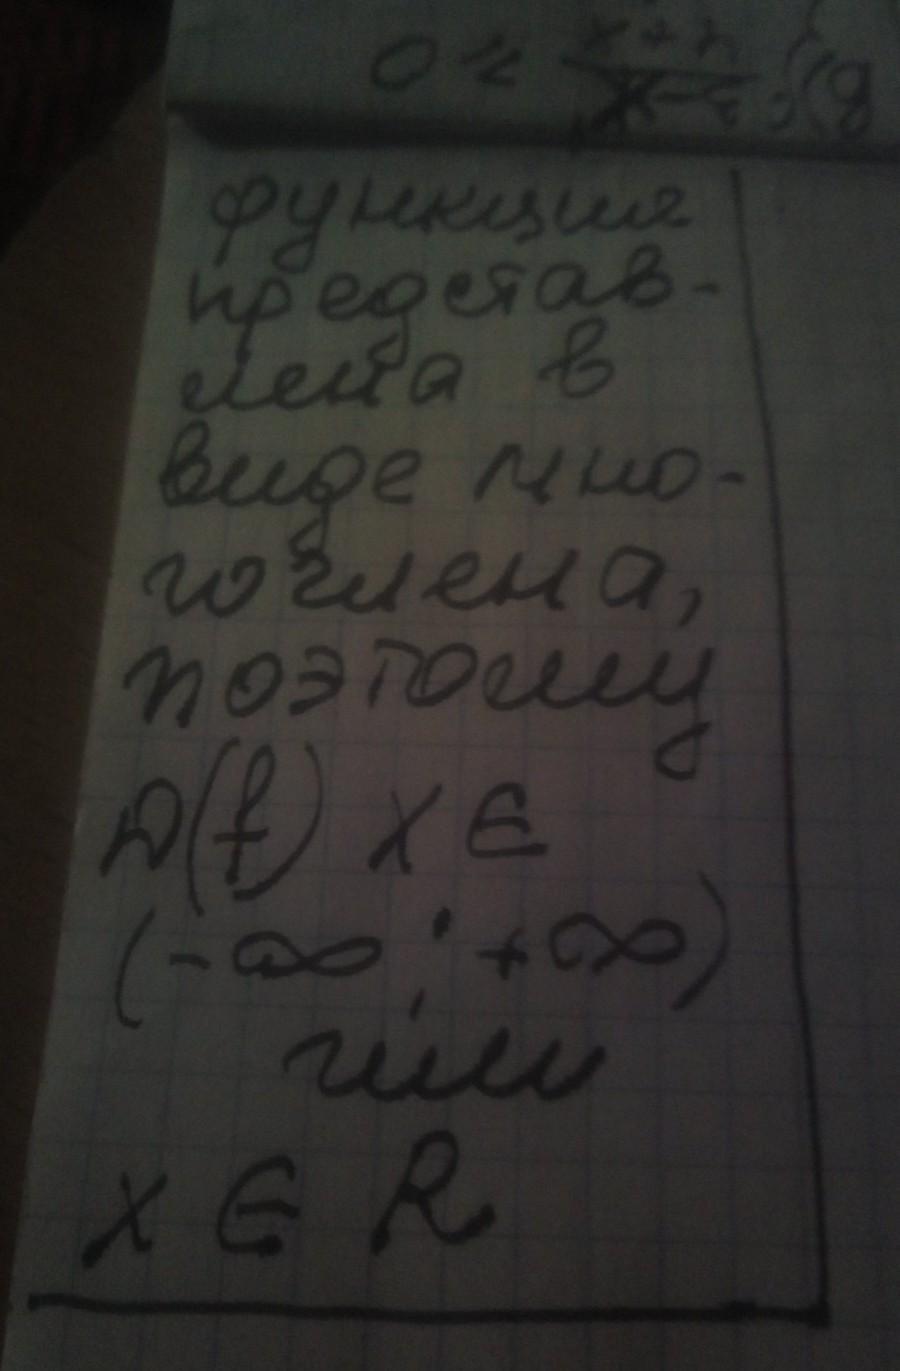 функция
представ-
лена в
виде мно-
гочлена,
поэтому
D(f) x ∈
(-∞; +∞)
или
x ∈ R